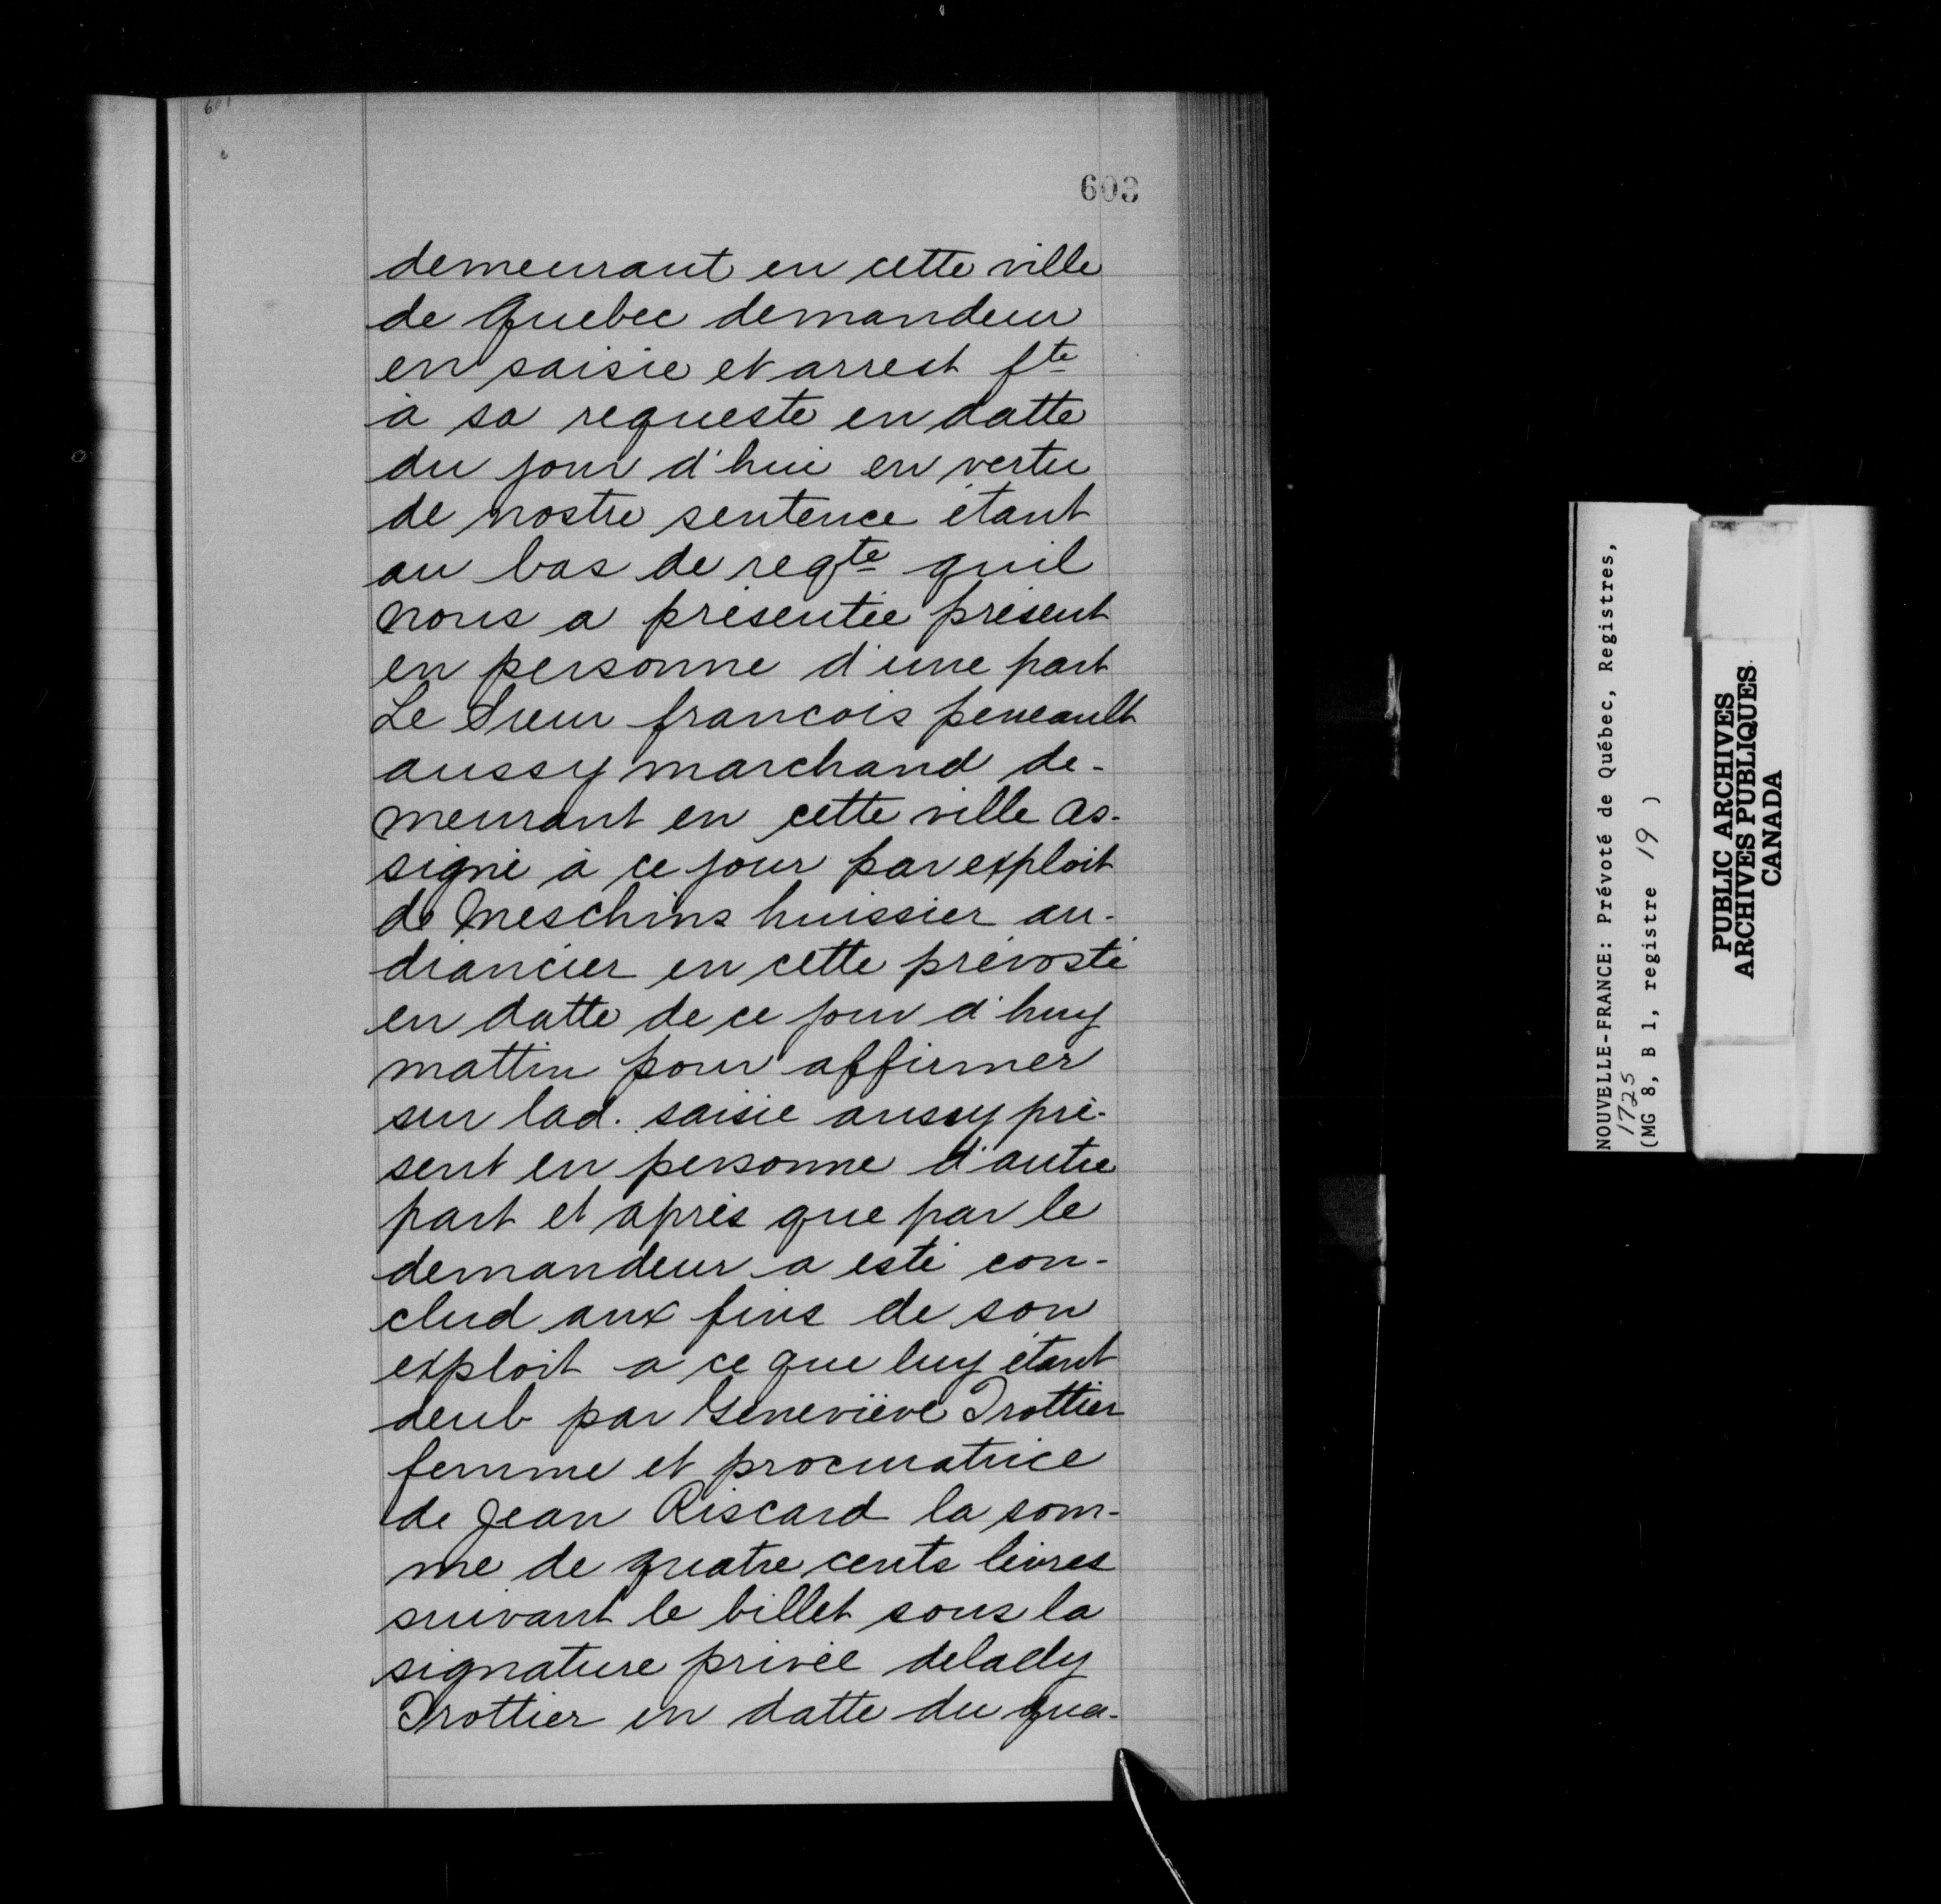 603
demeurant en cette ville
de Quebec demandeur
en saisie et arrest fte
à sa requeste en datte
du jour d'hui en vertu
de nostre sentence étant
au bas de reqte quil
nous a présentée présent
en personne d'une part
Le Sieur francois peneault
aussy marchand de-
meurant en cette ville as-
signé à ce jour par exploit
de Meschins huissier au-
diancier en cette prévosté
en datte de ce jour d'huy
mattin pour affirmer
sur lad. saisie aussy pré-
sent en personne d'autre
part et après que par le
demandeur a esté con-
clud aux fins de son
exploit a ce que luy étant
deub par Geneviève Trottier
femme et procuratrice
de Jean Riscard la som-
me de quatre cents livres
suivant le billet sous la
signature privée delad
Trottier en datte du qua-
NOUVELLE-FRANCE: Prévoté de Québec, Registres,
1725
(MG 8, B 1, registre 19 )
PUBLIC ARCHIVES
ARCHIVES PUBLIQUES
CANADA